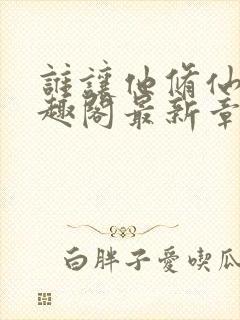 誰讓他脩仙
趣閣最新章
白胖子愛喫瓜